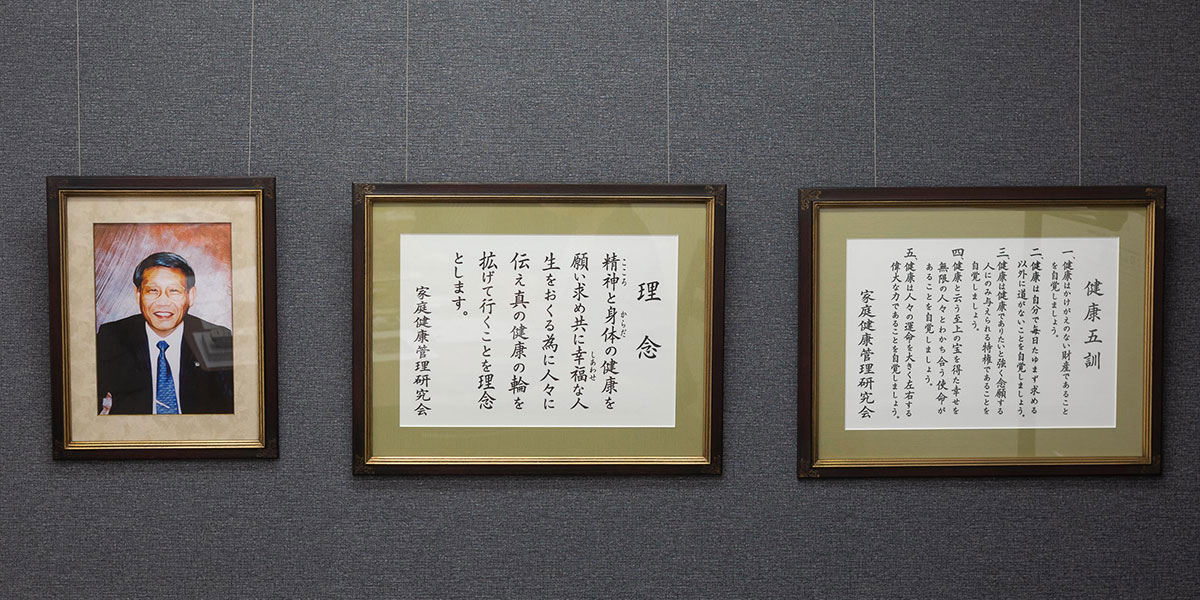 理念
精神と身体の健康を
こころ
からだ
願い求め共に幸福な人
しあわせ
生をおくる為に人々に
伝え真の健康の輪を
拡げて行くことを理念
とします。
家庭健康管理研究会
健康五訓
一、健康はかけがえのない財産であること
を自覚しましょう。
二、健康は自分で毎日たゆまず求める
以外に道がないことを自覚しましょう。
三、健康は健康でありたいと強く念願する
人にのみ与えられる特権であることを
自覚しましょう。
四、健康と云う至上の宝を得た幸せを
無限の人々とわかち合う使命が
あることを自覚しましょう。
五、健康は人々の運命を大きく左右する
偉大な力であることを自覚しましょう。
家庭健康管理研究会